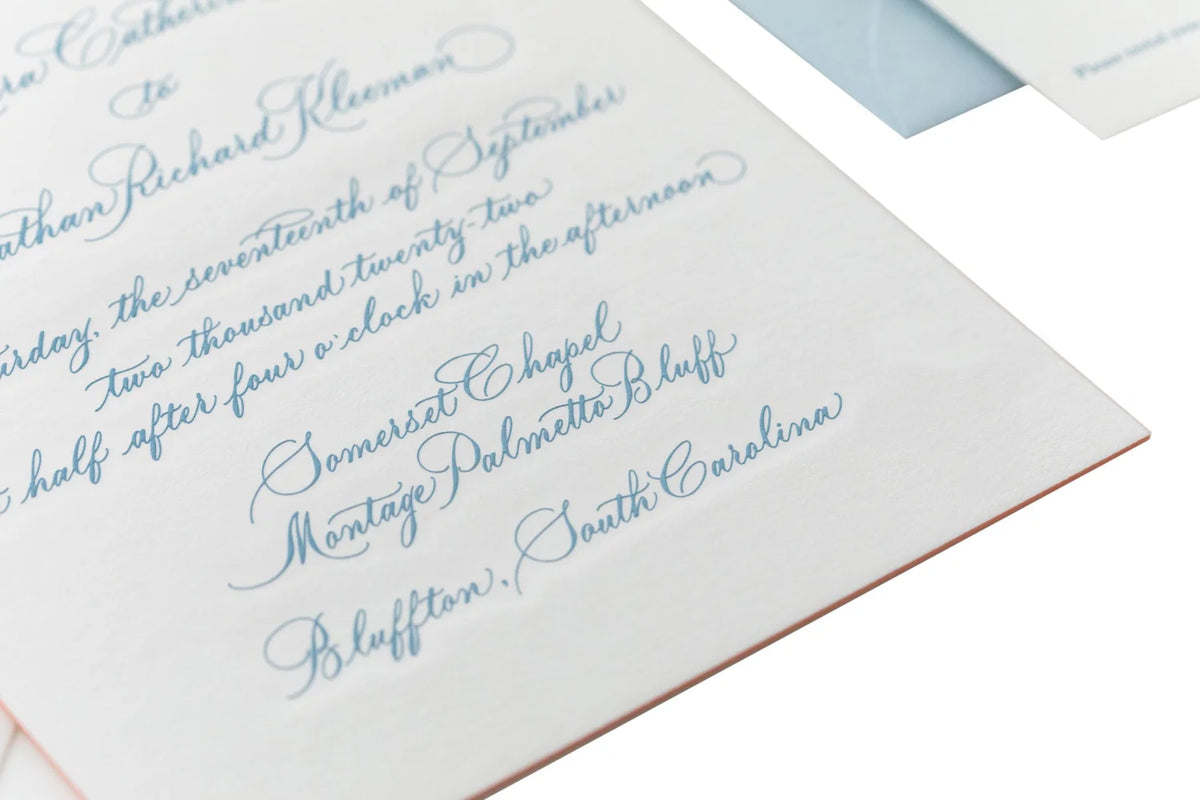 Catherine
to
Richard Kleeman
the seventeenth of September
two thousand twenty-two
half after four o'clock in the afternoon
Somerset Chapel
Montage Palmetto Bluff
Bluffton, South Carolina
Please send your